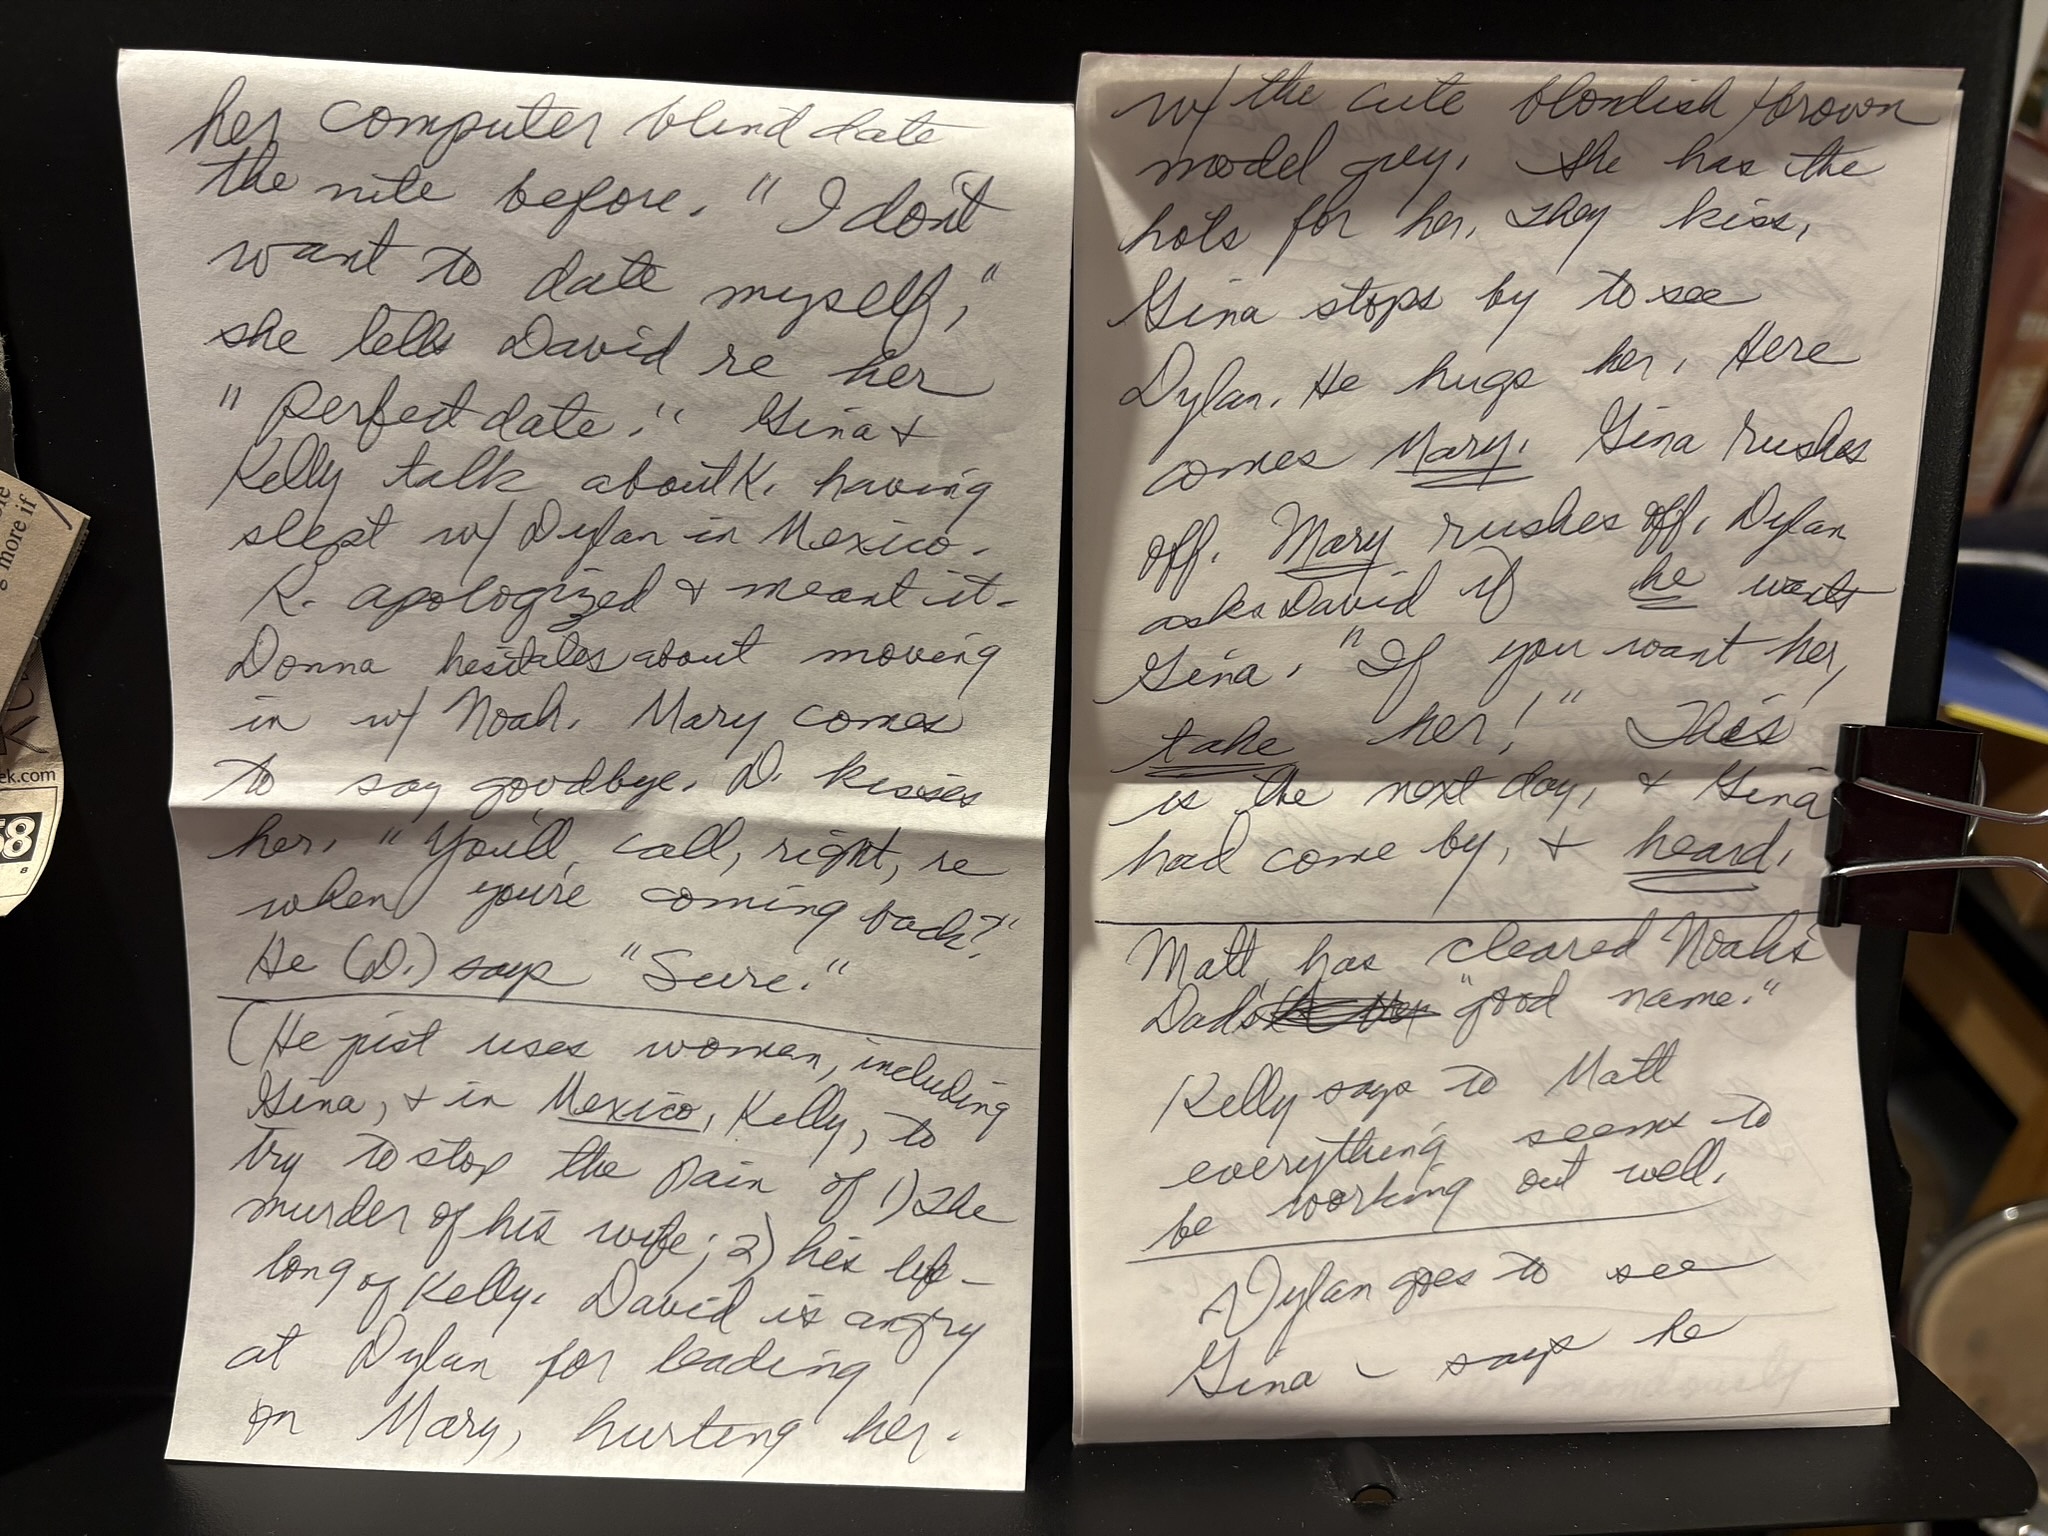 her computer blind date
the nite before. "I don't
want to date myself,"
she tells David re her
"Perfect date." Gina +
Kelly talk about K. having
slept w/ Dylan in Mexico.
K. apologized + meant it-
Donna hesitates about moving
in w/ Noah. Mary comes
to say goodbye. D. kisses
her. "You'll call, right, re
when you're coming back?"
He (D.) says "Sure."
(He just uses women, including
Gina, + in Mexico, Kelly, to
try to stop the pain of 1) The
murder of his wife; 2) his life-
long of Kelly. David is angry
at Dylan for leading
on Mary, hurting her.
w/ the cute blondish/brown
model guy. She has the
hots for her. They kiss.
Gina stops by to see
Dylan. He hugs her. Here
comes Mary. Gina rushes
off. Mary rushes off. Dylan
asks David if he wants
Gina. "If you want her,
take her!" This
is the next day, + Gina
had come by, + heard.
Matt has cleared Noah's
Dad's "good name."
Kelly says to Matt
everything seems to
be working out well.
Dylan goes to see
Gina - says he
more if
ek.com
58
8